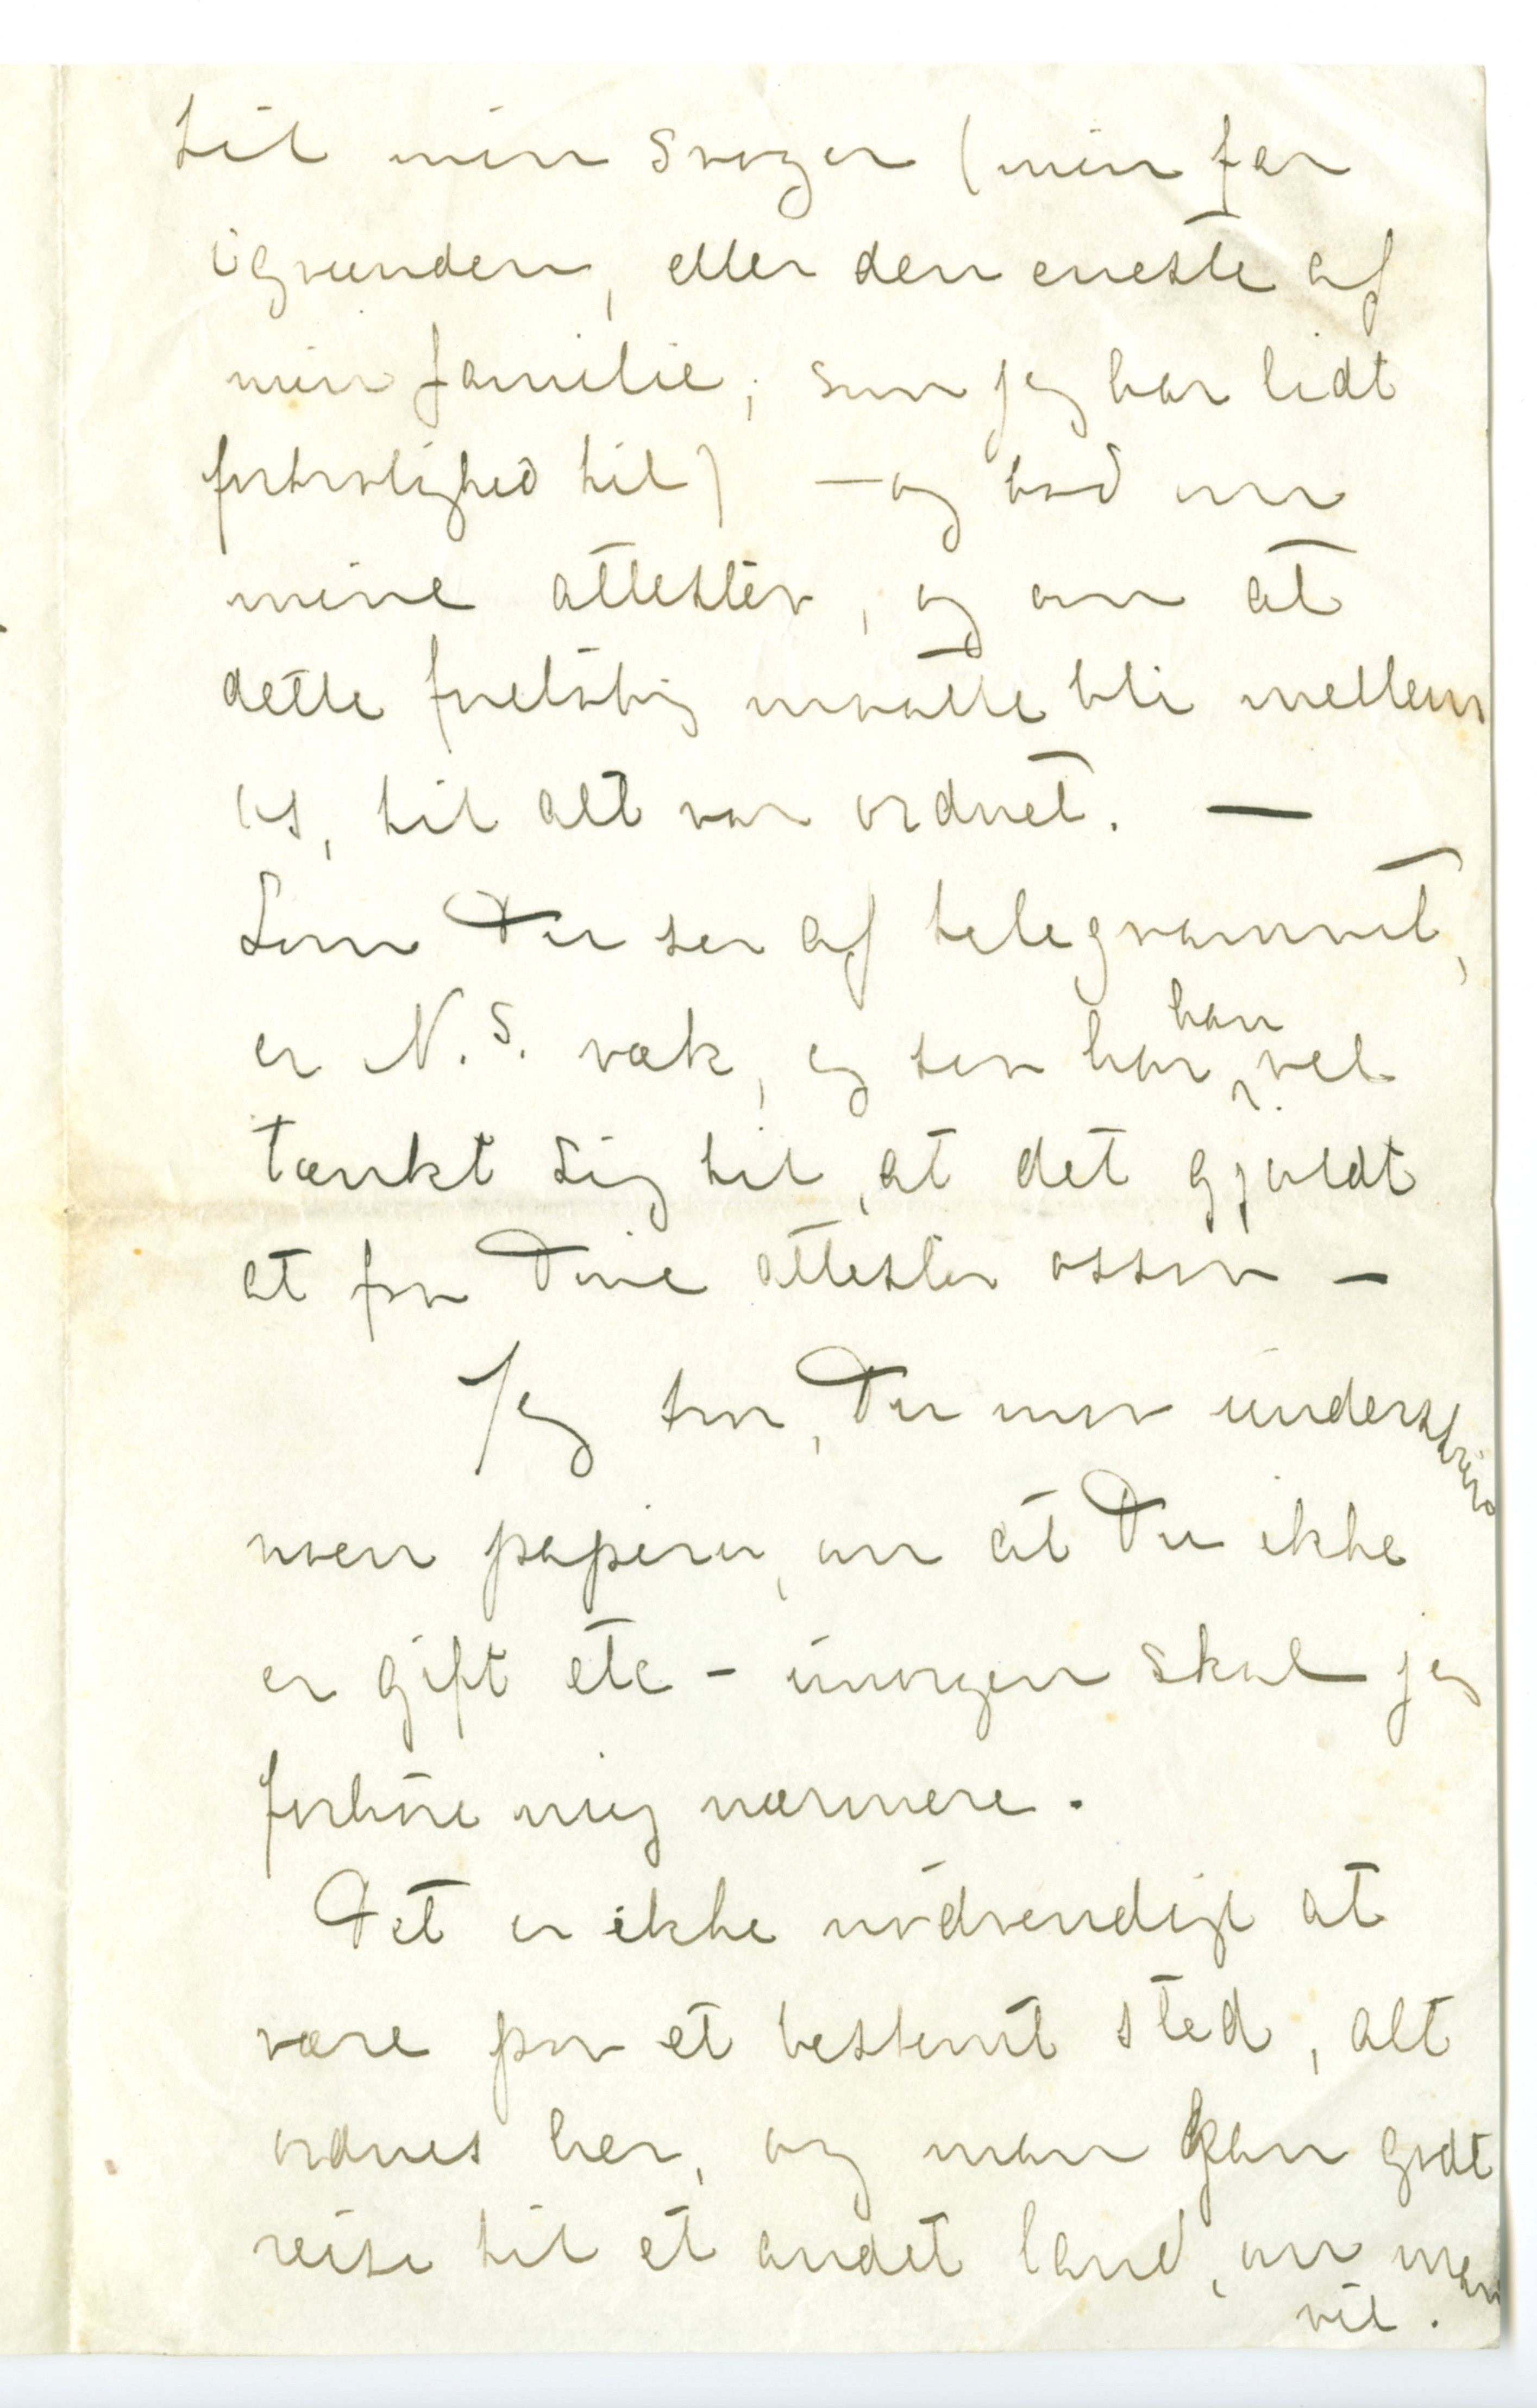 til min svoger (min far
igrunden, eller den eneste af
min familie, som jeg har lidt
fortrolighed til) – og bad om
mine attester, og om at
dette foreløbig maatte bli mellem
os, til alt var ordnet. –
Som Du ser af telegrammet,
er N.S. væk, og saa har han vel
tænkt sig til, at det gjaldt
at faa Dine attester ossaa –
Jeg tror, Du maa underskrive
noen papirer, om at Du ikke
er gift etc – imorgen skal jeg
forhøre mig nærmere.
Det er ikke nødvendigt at
være paa et bestemt sted, alt
ordnes her, og man kan godt
reise til et andet land, om man
vil.